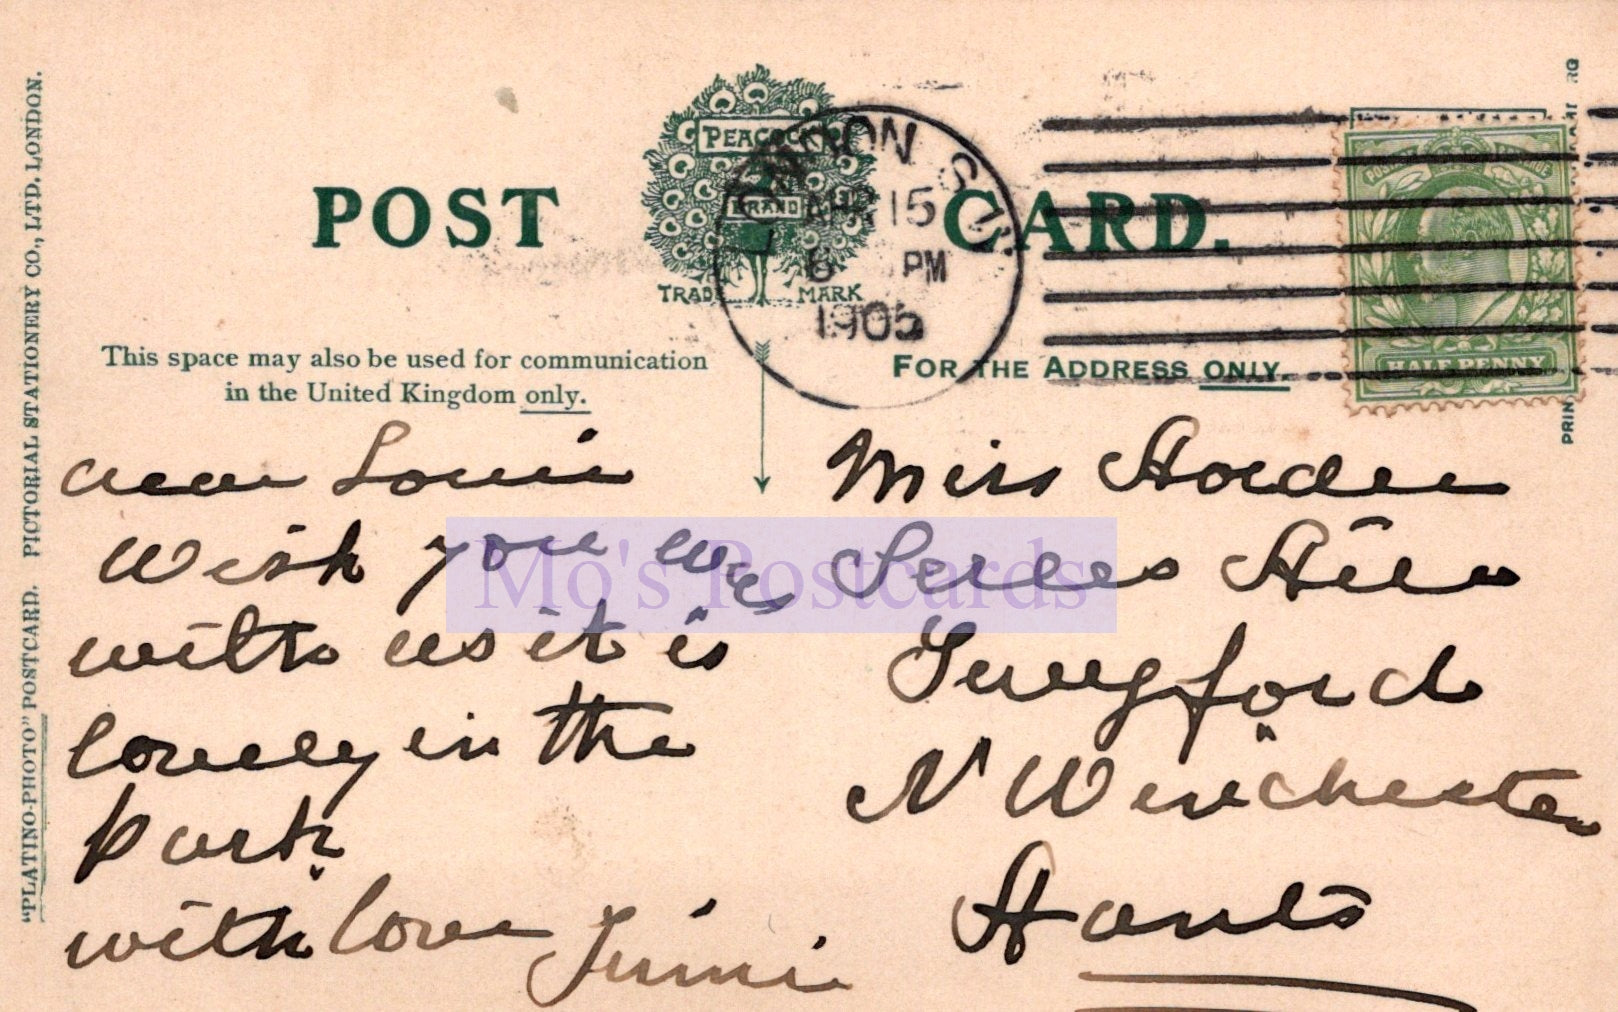 "PLATINO-PHOTO" POSTCARD. PICTORIAL STATIONERY CO., LTD. LONDON.
POST CARD.
PEACOCK
BRAND
TRADE MARK
LONDON S.W.
APR 15
8 PM
1905
POSTAGE
HALF PENNY
PRIN
RG
This space may also be used for communication
in the United Kingdom only.
FOR THE ADDRESS ONLY.
dear Louie
Wish you were
with us it is
lovely in the
park
with love Jimi
Miss Holdee
Serles Hill
Twyford
N Winchester
Hants
Mo's Postcards